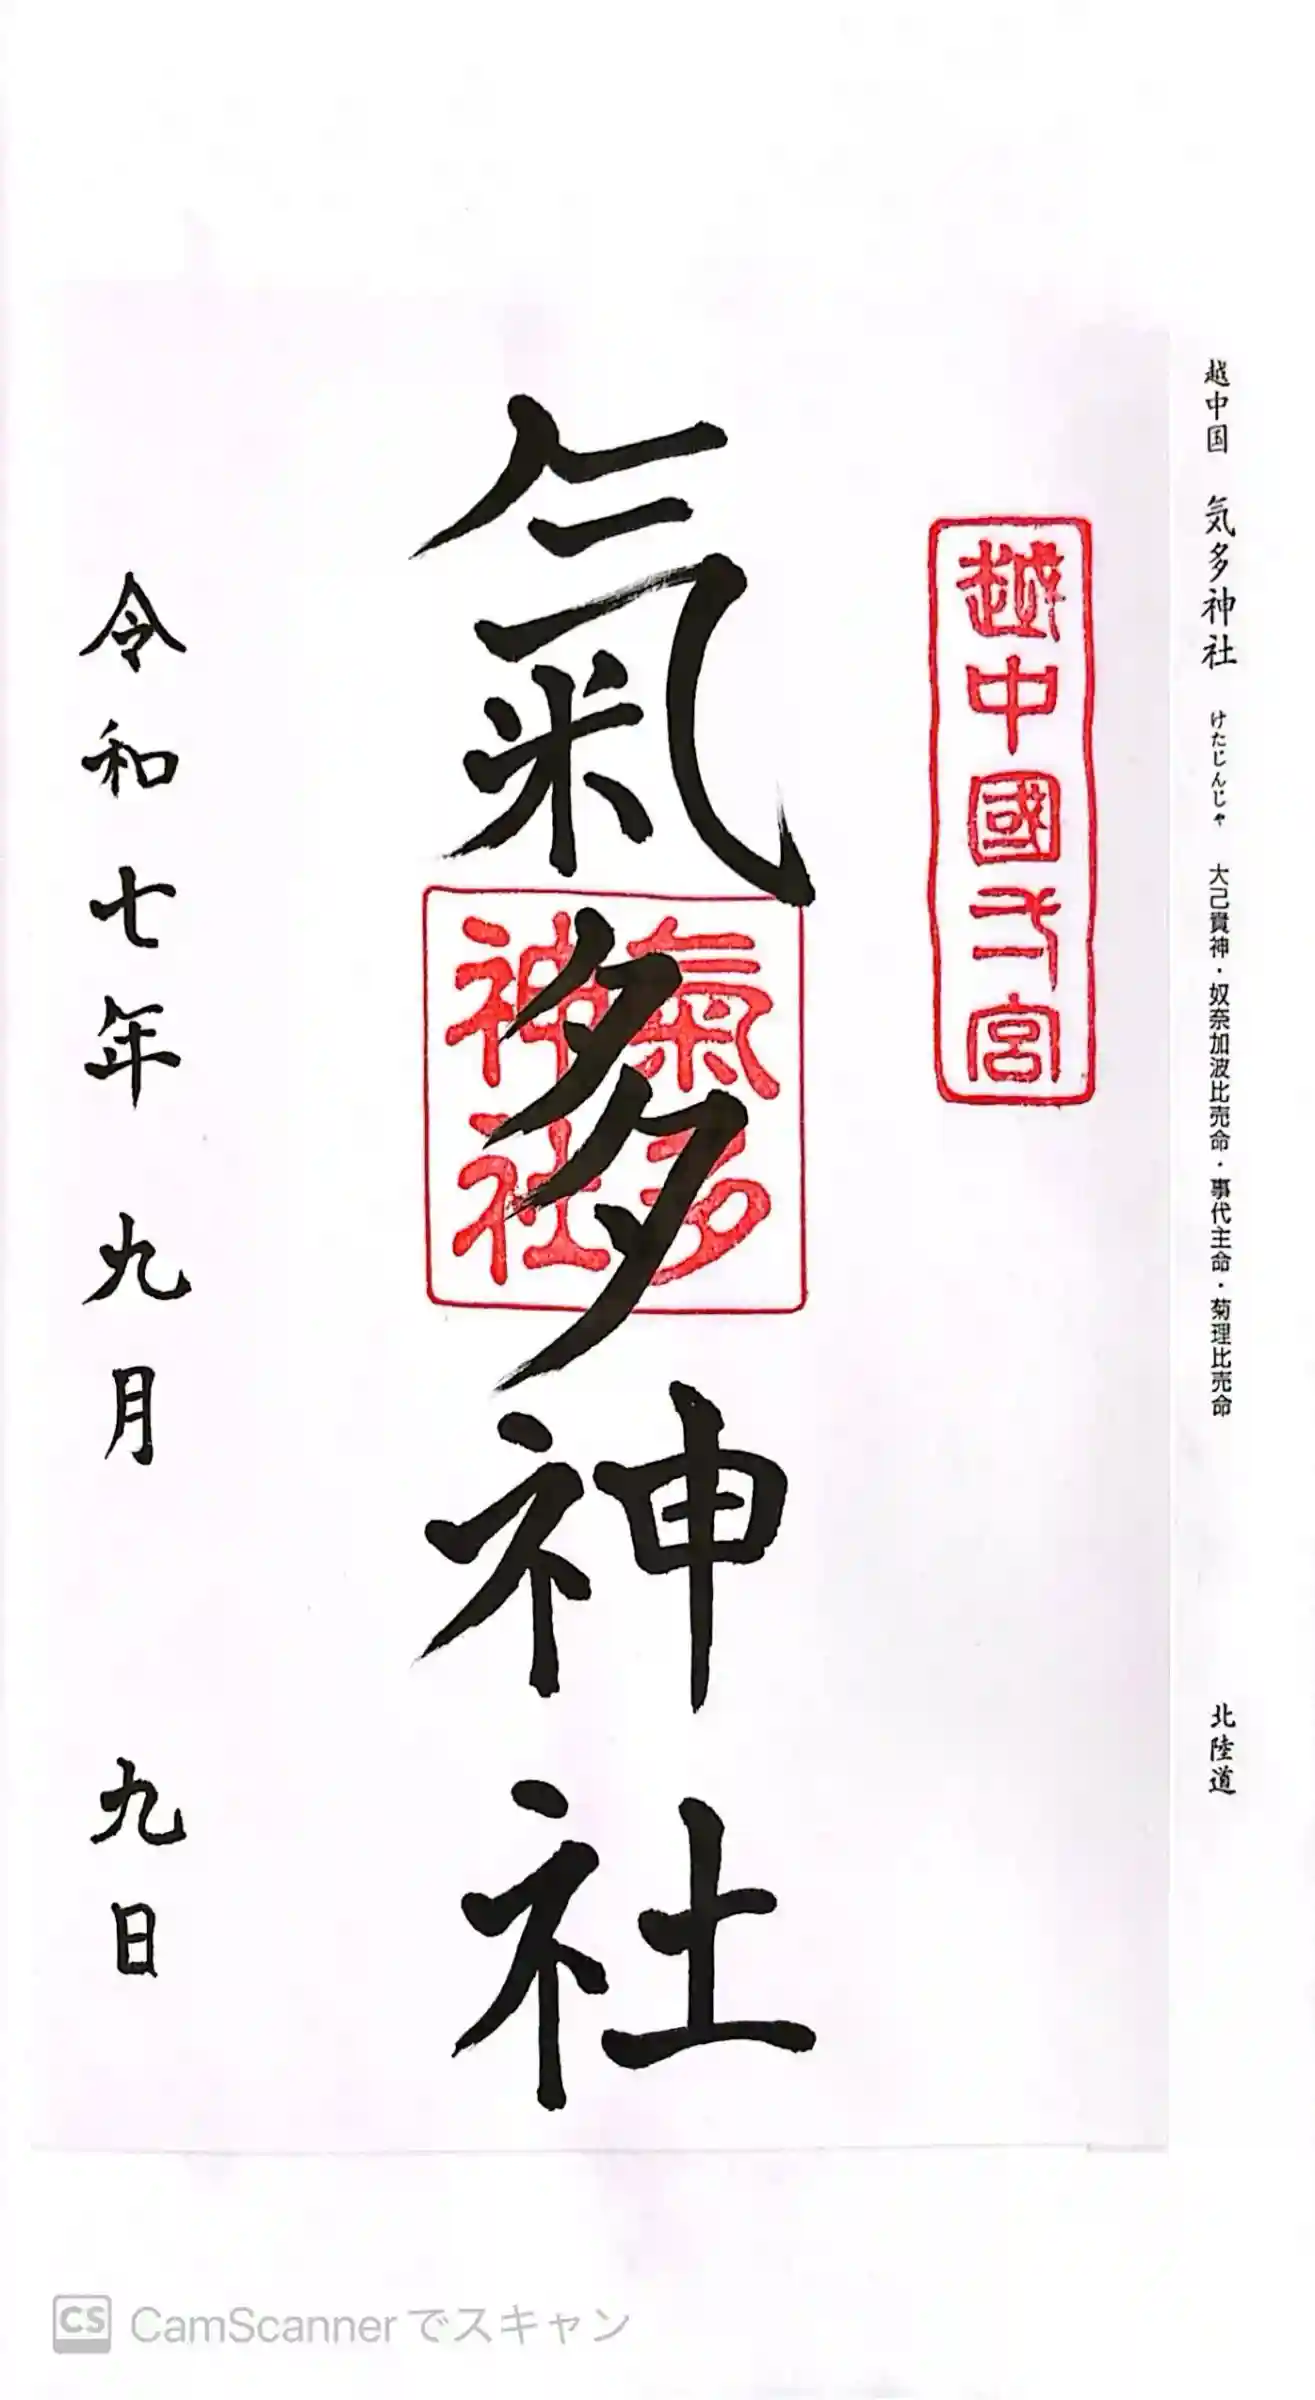 越中国 気多神社 けたじんじゃ 大己貴神・奴奈加波比売命・事代主命・菊理比売命 北陸道
越中國弌宮
氣多神社
氣多
神社
令和七年 九月 九日
CS CamScannerでスキャン